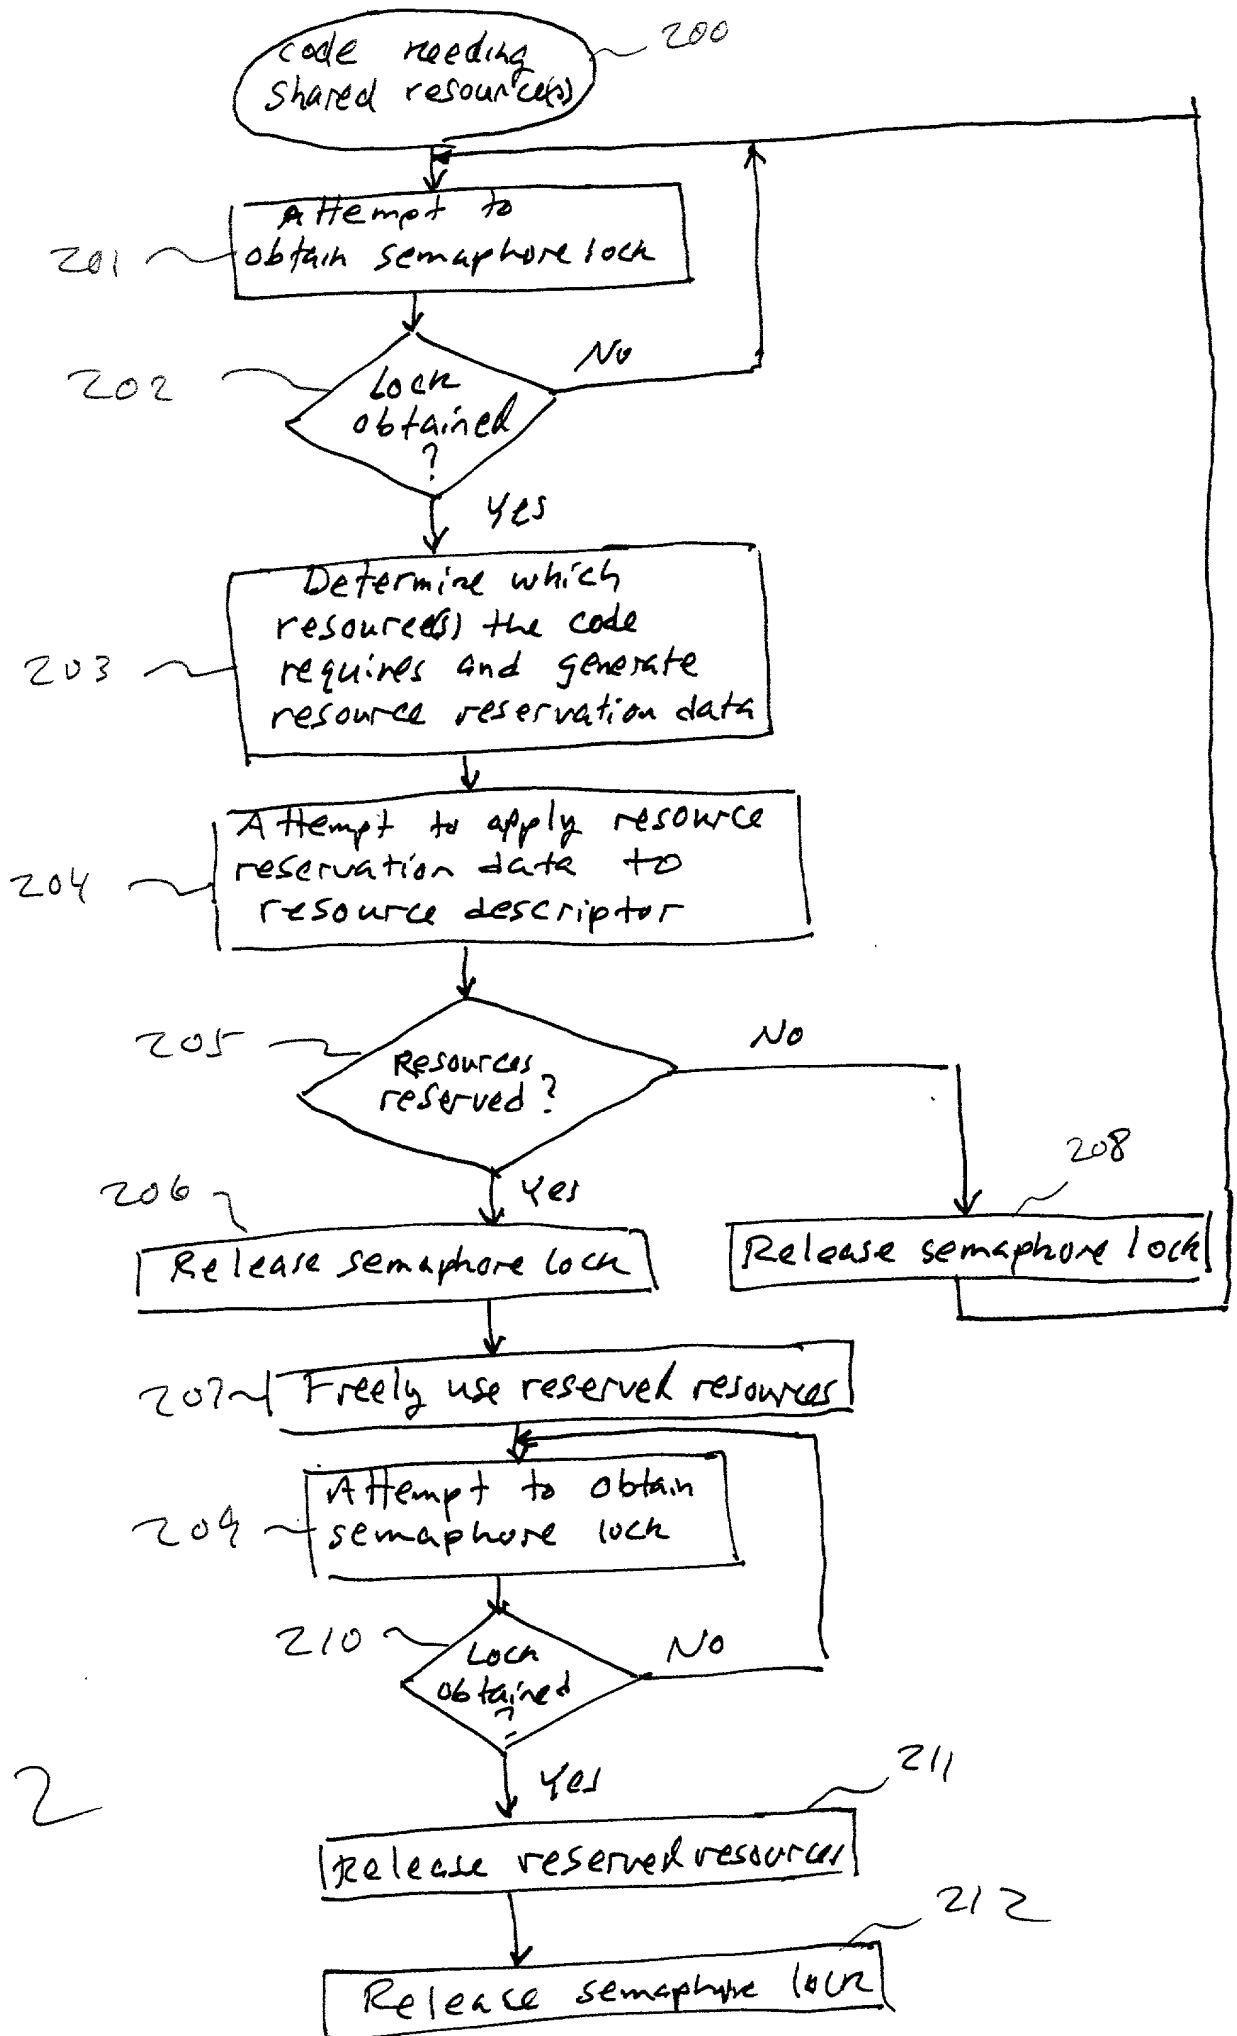 Code needing
shared resource(s)
200
Attempt to
obtain semaphore lock
201
202
Lock
obtained
?
No
Yes
Determine which
resource(s) the code
requires and generate
resource reservation data
203
Attempt to apply resource
reservation data to
resource descriptor
204
205
Resources
reserved?
No
Yes
206
208
Release semaphore lock
Release semaphore lock
207
Freely use reserved resources
Attempt to obtain
semaphore lock
209
210
Lock
obtained
?
No
Yes
2
211
Release reserved resources
212
Release semaphore lock